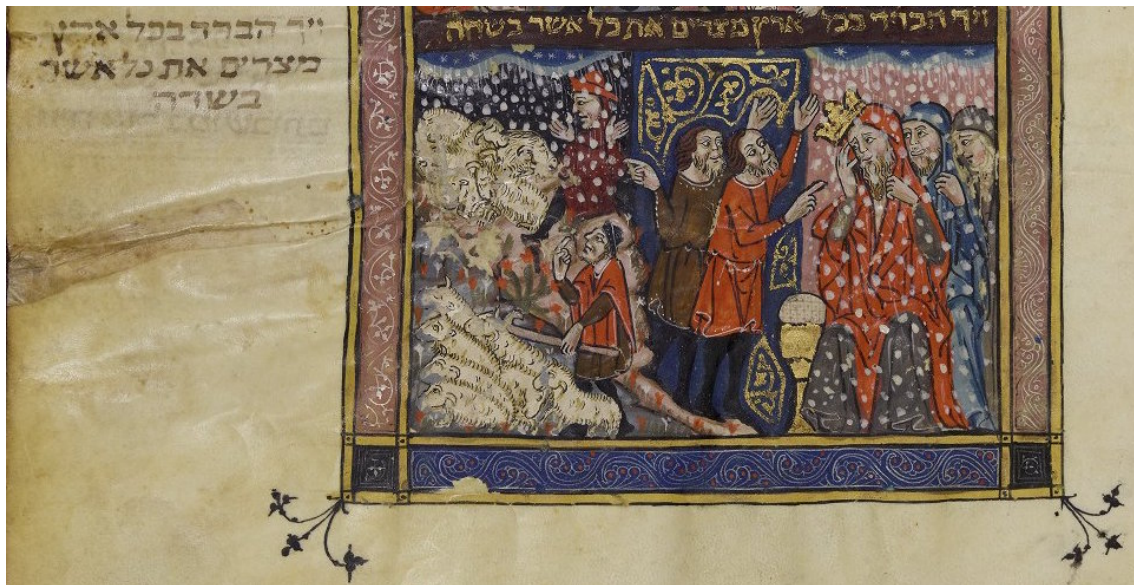 ויך הברד בכל ארץ מצרים את כל אשר בשדה
ויך הברד בכל ארץ
מצרים את כל אשר
בשדה